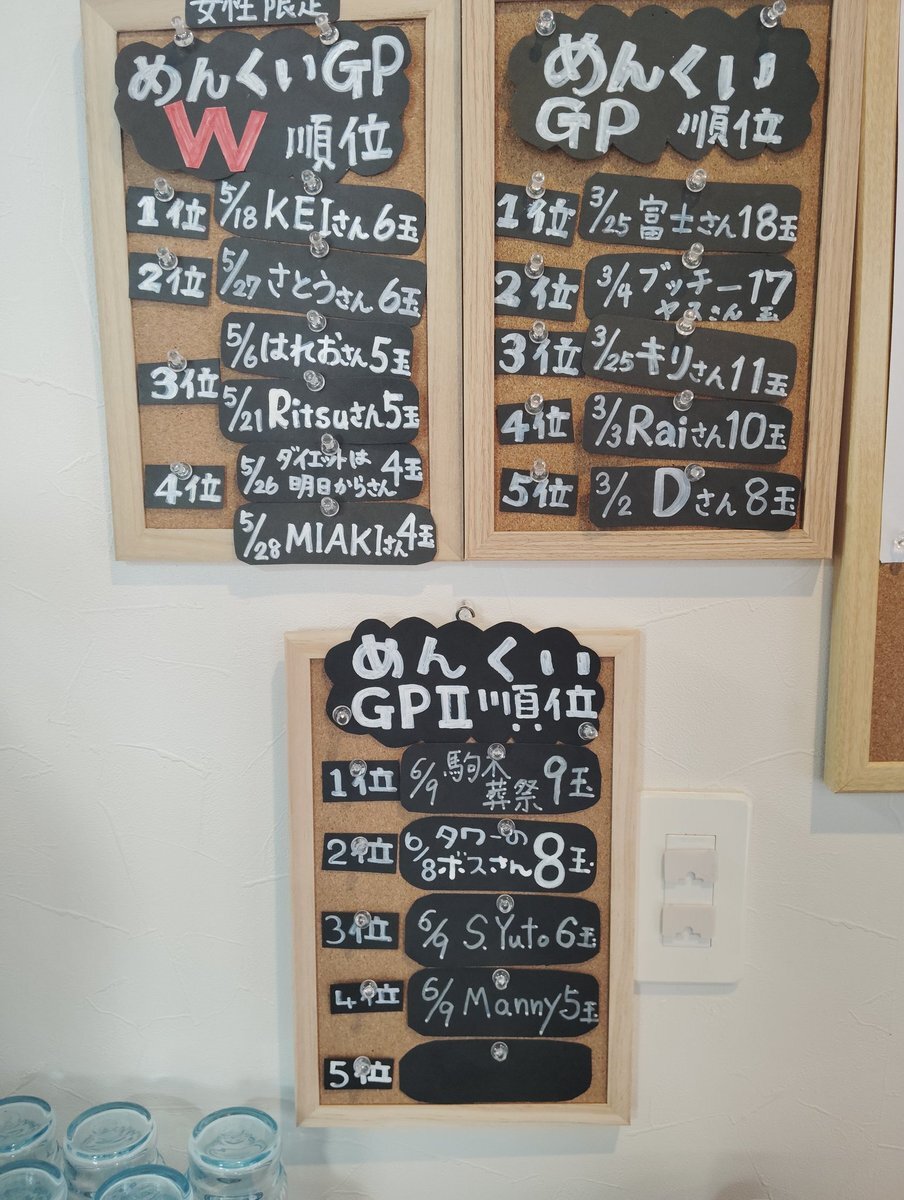 女性限定
めんくいGP
W 順位
1位 5/18 KEIさん 6玉
2位 5/27 さとうさん 6玉
3位 5/6 はれおさん 5玉
5/21 Ritsuさん 5玉
4位 5/26 ダイエットは明日からさん 4玉
5/28 MIAKIさん 4玉
めんくい
GP 順位
1位 3/25 富士さん 18玉
2位 3/4 ブッチーヤスさん 17玉
3位 3/25 キリさん 11玉
4位 3/3 Raiさん 10玉
5位 3/2 Dさん 8玉
めんくい
GPⅡ順位
1位 6/9 駒木葬祭 9玉
2位 6/8 タワーのボスさん 8玉
3位 6/9 S.Yuto 6玉
4位 6/9 Manny 5玉
5位